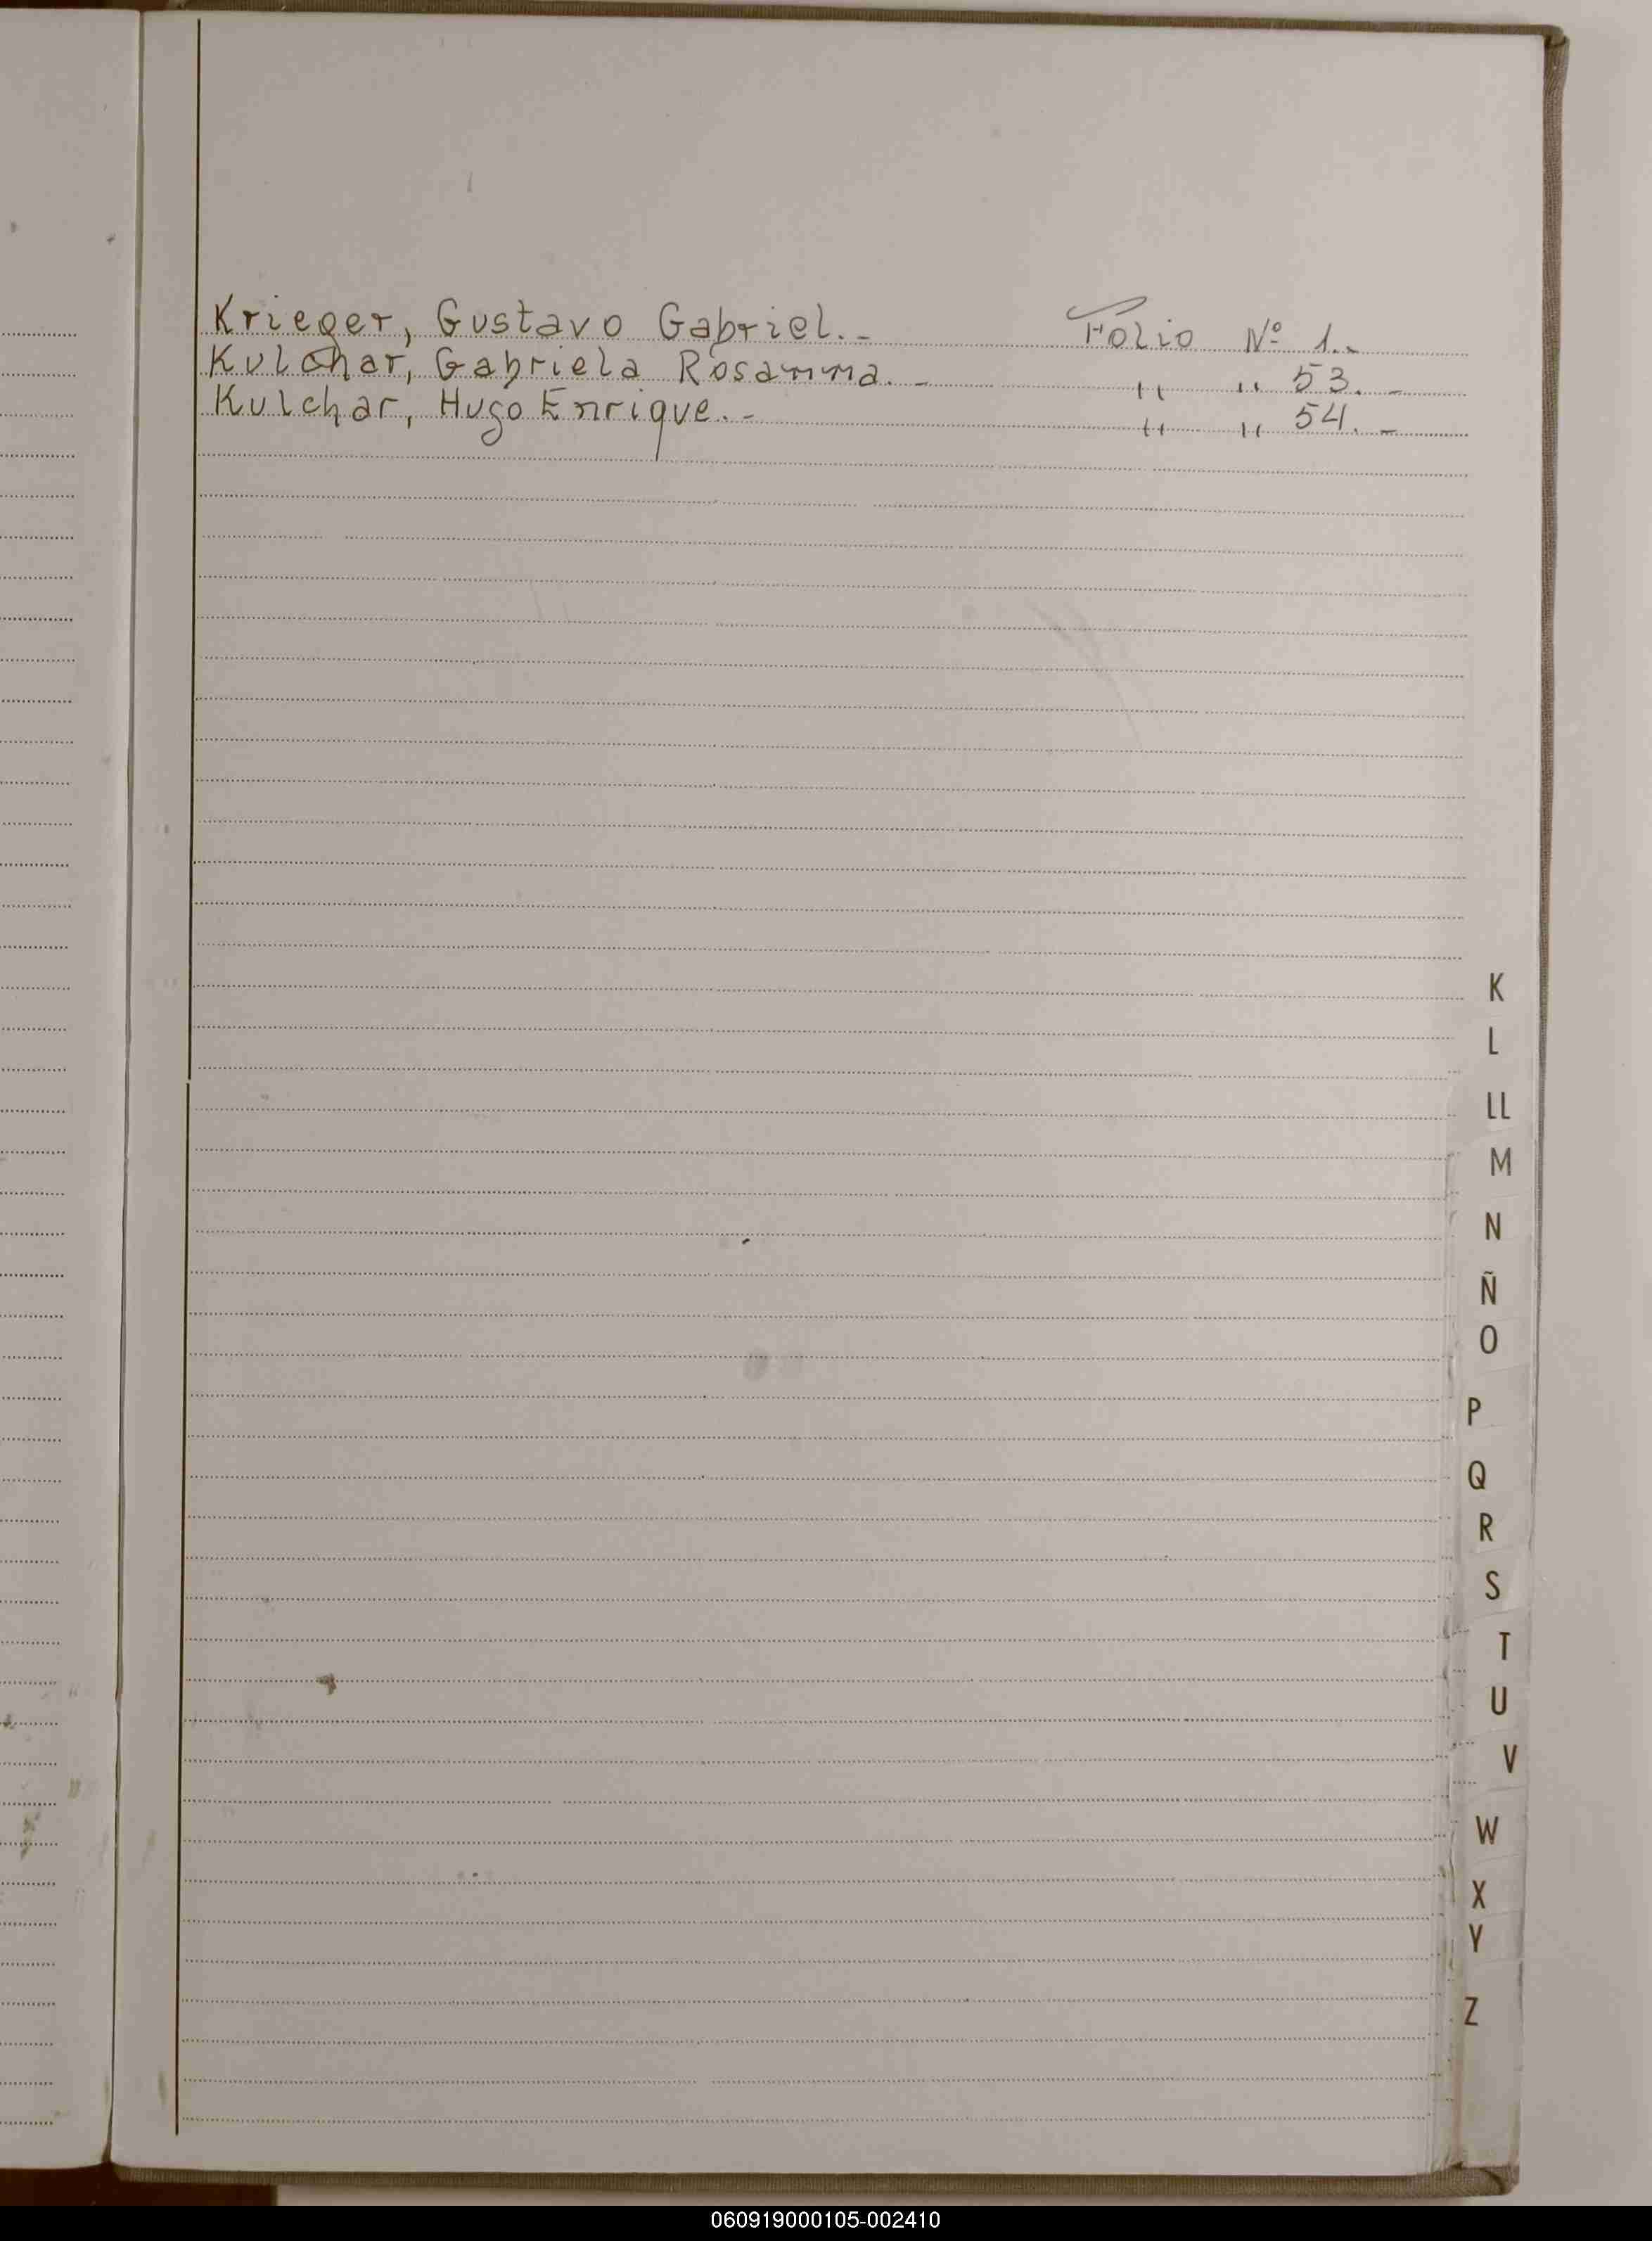 Krieger, Gustavo Gabriel.- Folio Nº 1.-
Kulchar, Gabriela Rosanna.- " " 53.-
Kulchar, Hugo Enrique.- " " 54.-
K
L
LL
M
N
Ñ
O
P
Q
R
S
T
U
V
W
X
Y
Z
060919000105-002410